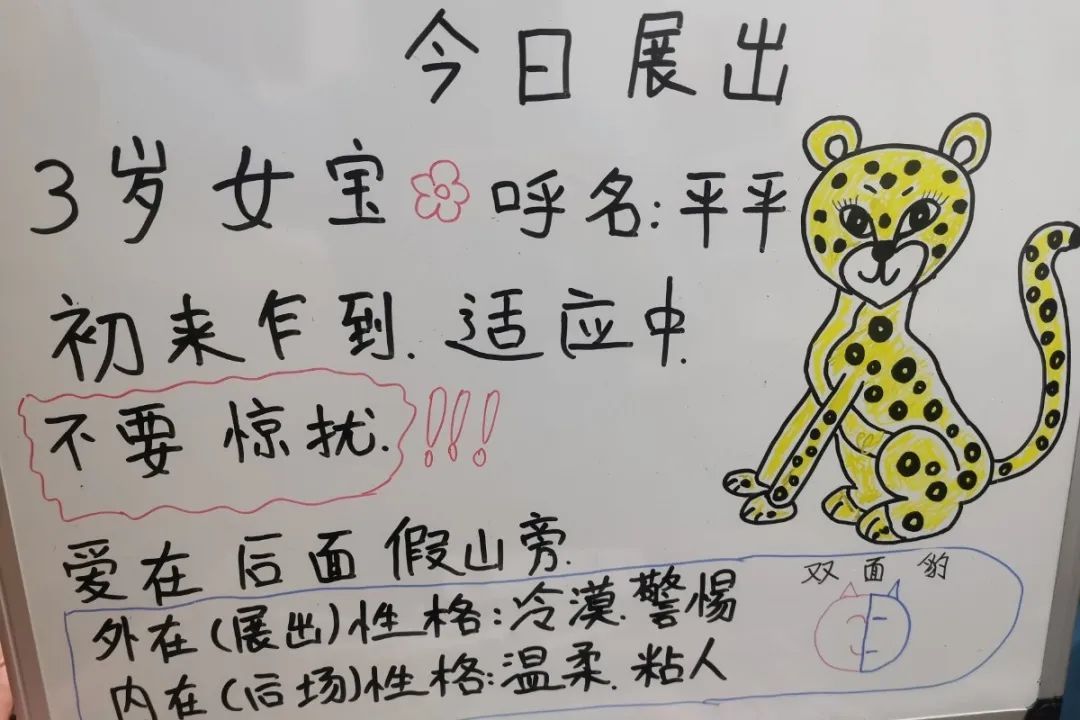 今日展出
3岁女宝 呼名:平平
初来乍到.适应中.
不要惊扰.!!!
爱在后面假山旁.
双面豹
外在(展出)性格:冷漠.警惕
内在(后场)性格:温柔.粘人